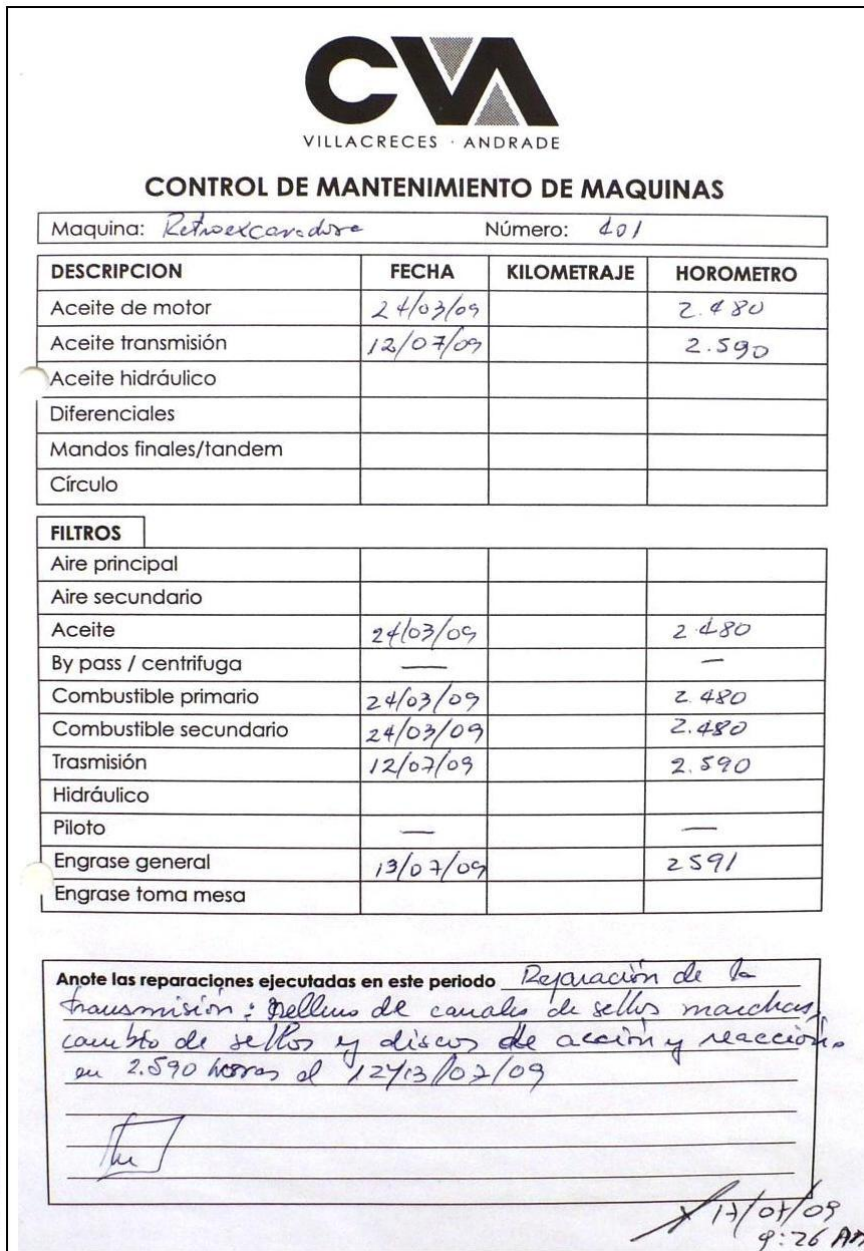 CVA
VILLACRECES · ANDRADE
CONTROL DE MANTENIMIENTO DE MAQUINAS
Maquina: Retroexcavadora Número: 401
DESCRIPCION FECHA KILOMETRAJE HOROMETRO
Aceite de motor 24/03/09 2.480
Aceite transmisión 12/07/09 2.590
Aceite hidráulico
Diferenciales
Mandos finales/tandem
Círculo
FILTROS
Aire principal
Aire secundario
Aceite 24/03/09 2.480
By pass / centrifuga — —
Combustible primario 24/03/09 2.480
Combustible secundario 24/03/09 2.480
Trasmisión 12/07/09 2.590
Hidráulico
Piloto — —
Engrase general 13/07/09 2591
Engrase toma mesa
Anote las reparaciones ejecutadas en este periodo Reparación de la
transmisión: Relleno de canales de sellos marchas,
cambio de sellos y discos de acción y reacción.
en 2.590 horas el 12y13/07/09
17/07/09
9:26 AM